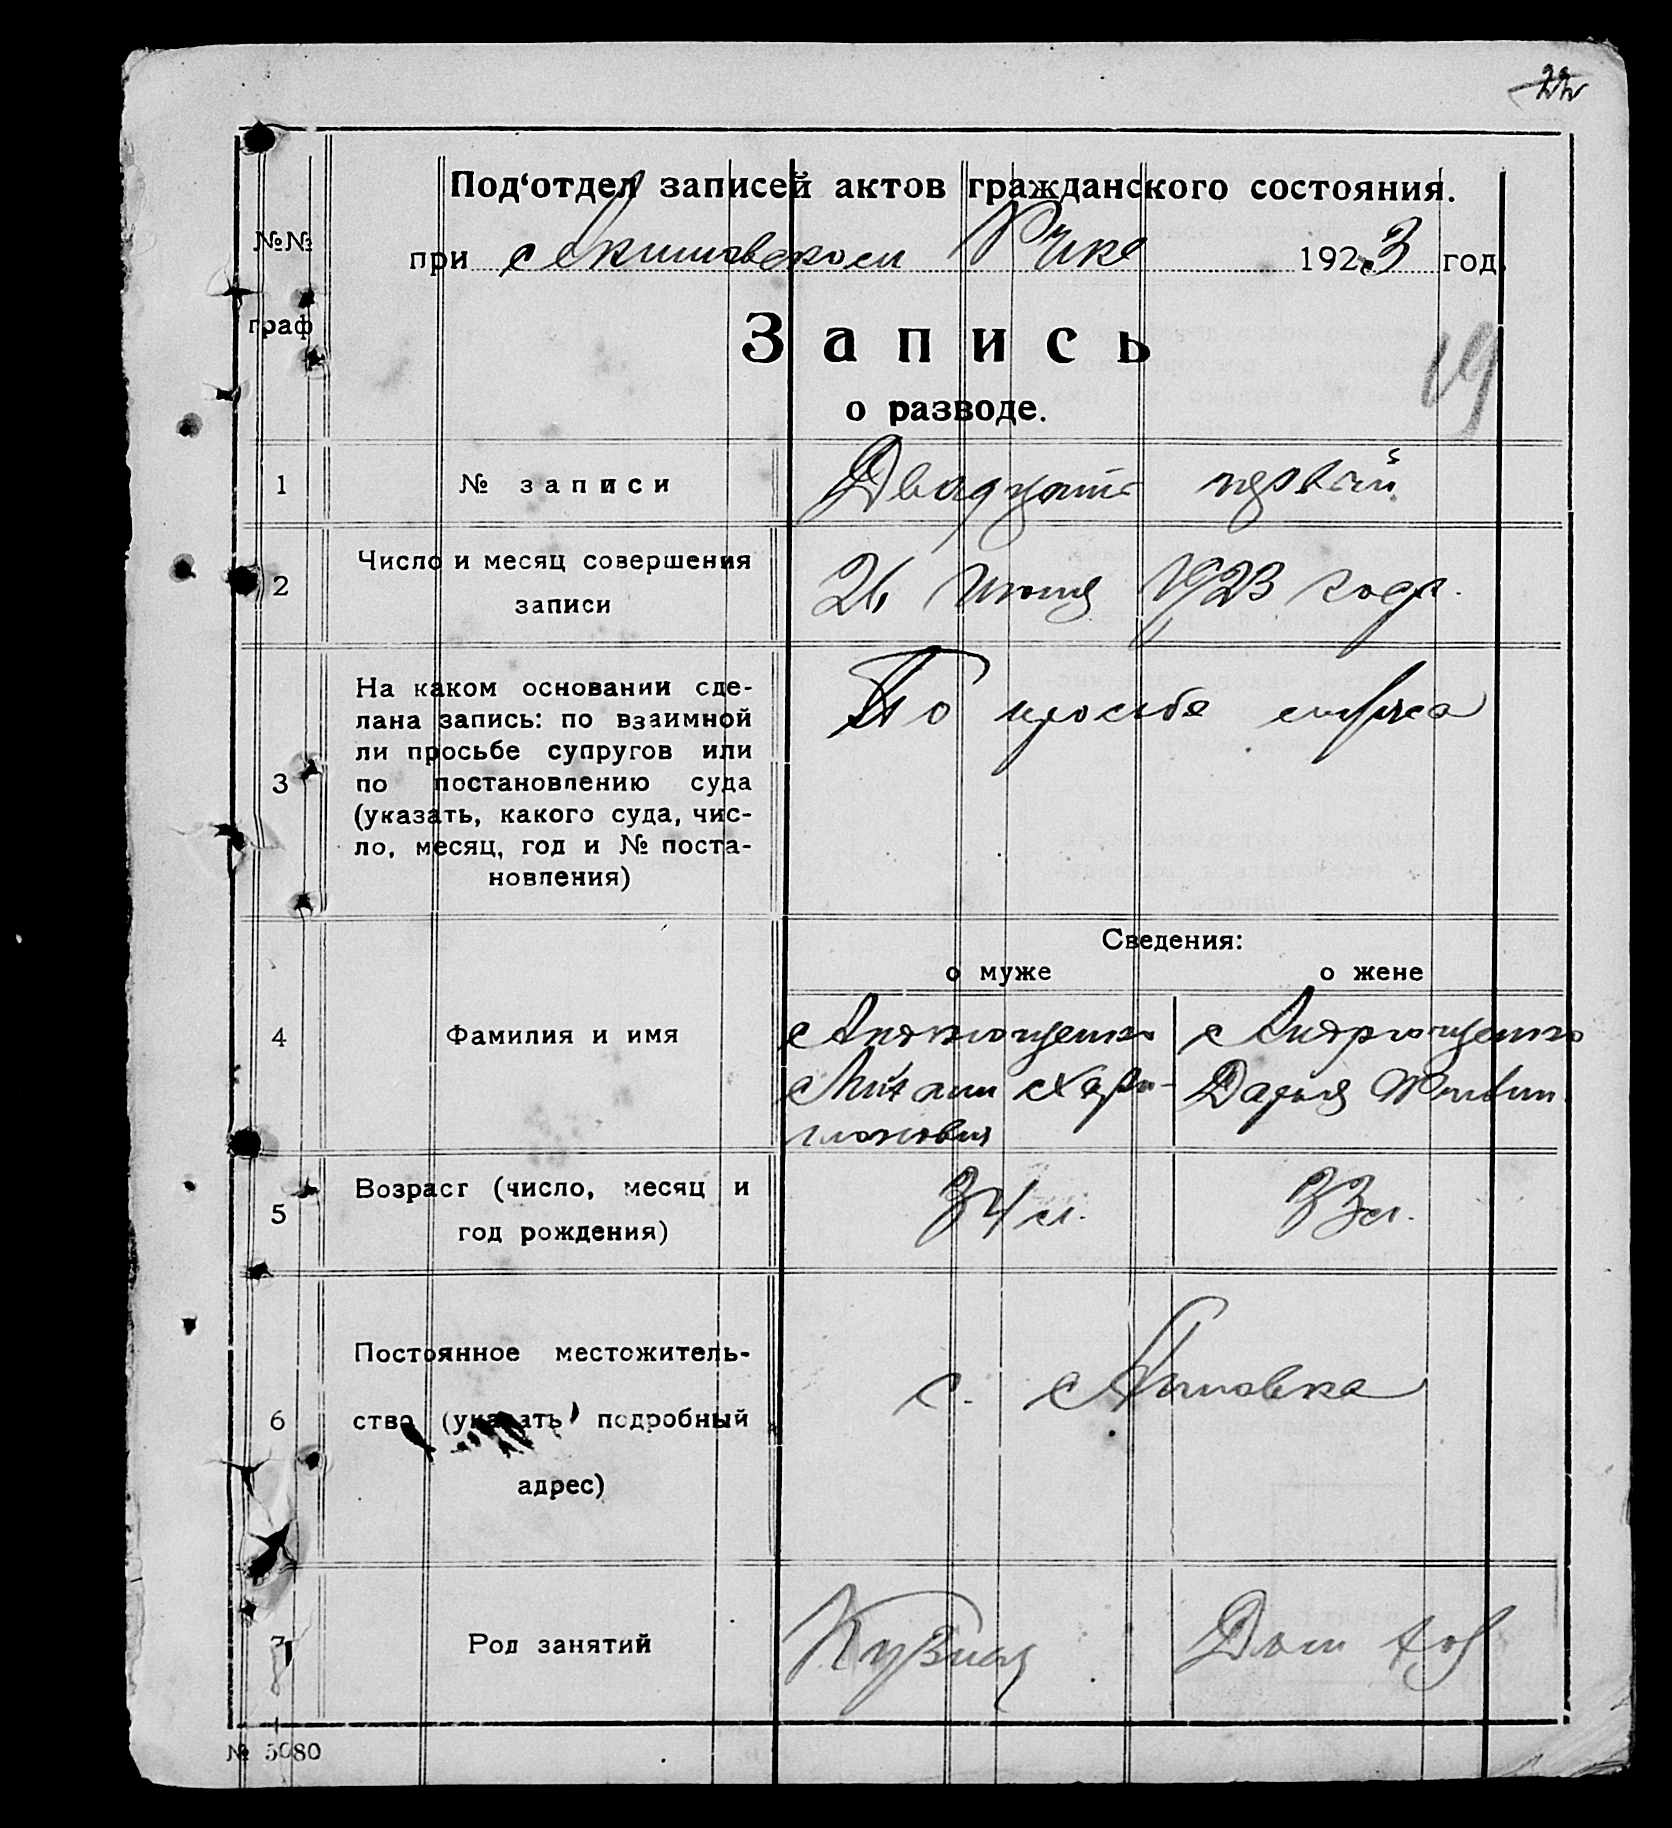 22
Под'отдел записей актов гражданского состояния.
№№
граф
при Акимовском Рике 1923 год
Запись
19
о разводе.
1 № записи Двадцать первый
2 Число и месяц совершения
записи
26 июня 1923 года.
3 На каком основании сде-
лана запись: по взаимной
ли просьбе супругов или
по постановлению суда
(указать, какого суда, чис-
ло, месяц, год и № поста-
новления)
По просьбе
Сведения:
о муже о жене
4 Фамилия и имя
Андрющенко Андрющенко
Дарья
5 Возраст (число, месяц и
год рождения)
34 л. 33 л.
6 Постоянное местожитель-
ство (указать подробный
адрес)
с.
7 Род занятий Кузнец Дом хоз
№ 5080